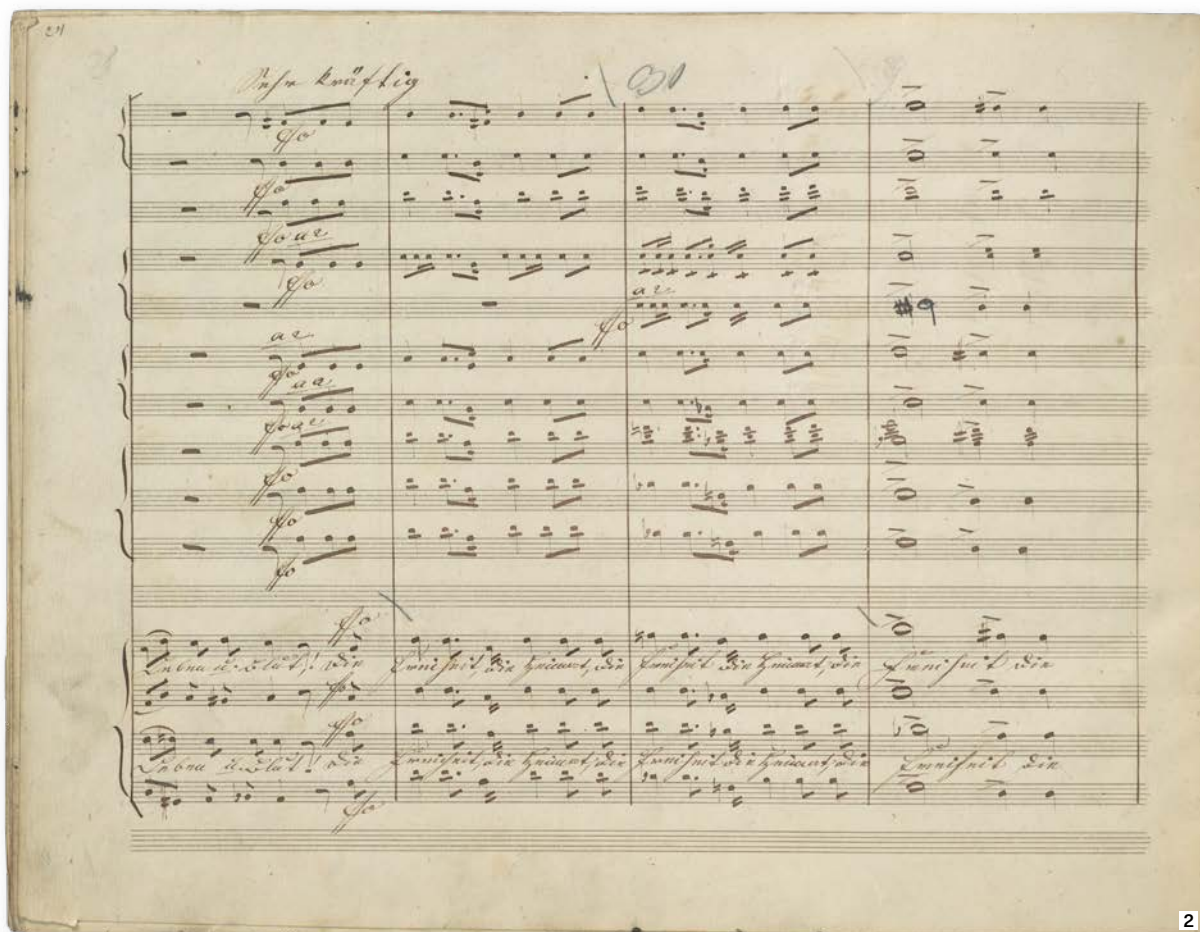 24
Sehr kräftig
30
ffo
ffo
ffo a 2
ffo
a 2
ffo
a 2
ffo
a 2
ffo a 2
ffo
ffo
fo
ffo
Leben u. Blut! die Freiheit, die Heimat, die Freiheit die Heimat, die Freiheit die
ffo
ffo
Leben u. Blut! die Freiheit, die Heimat, die Freiheit die Heimat, die Freiheit die
ffo
2